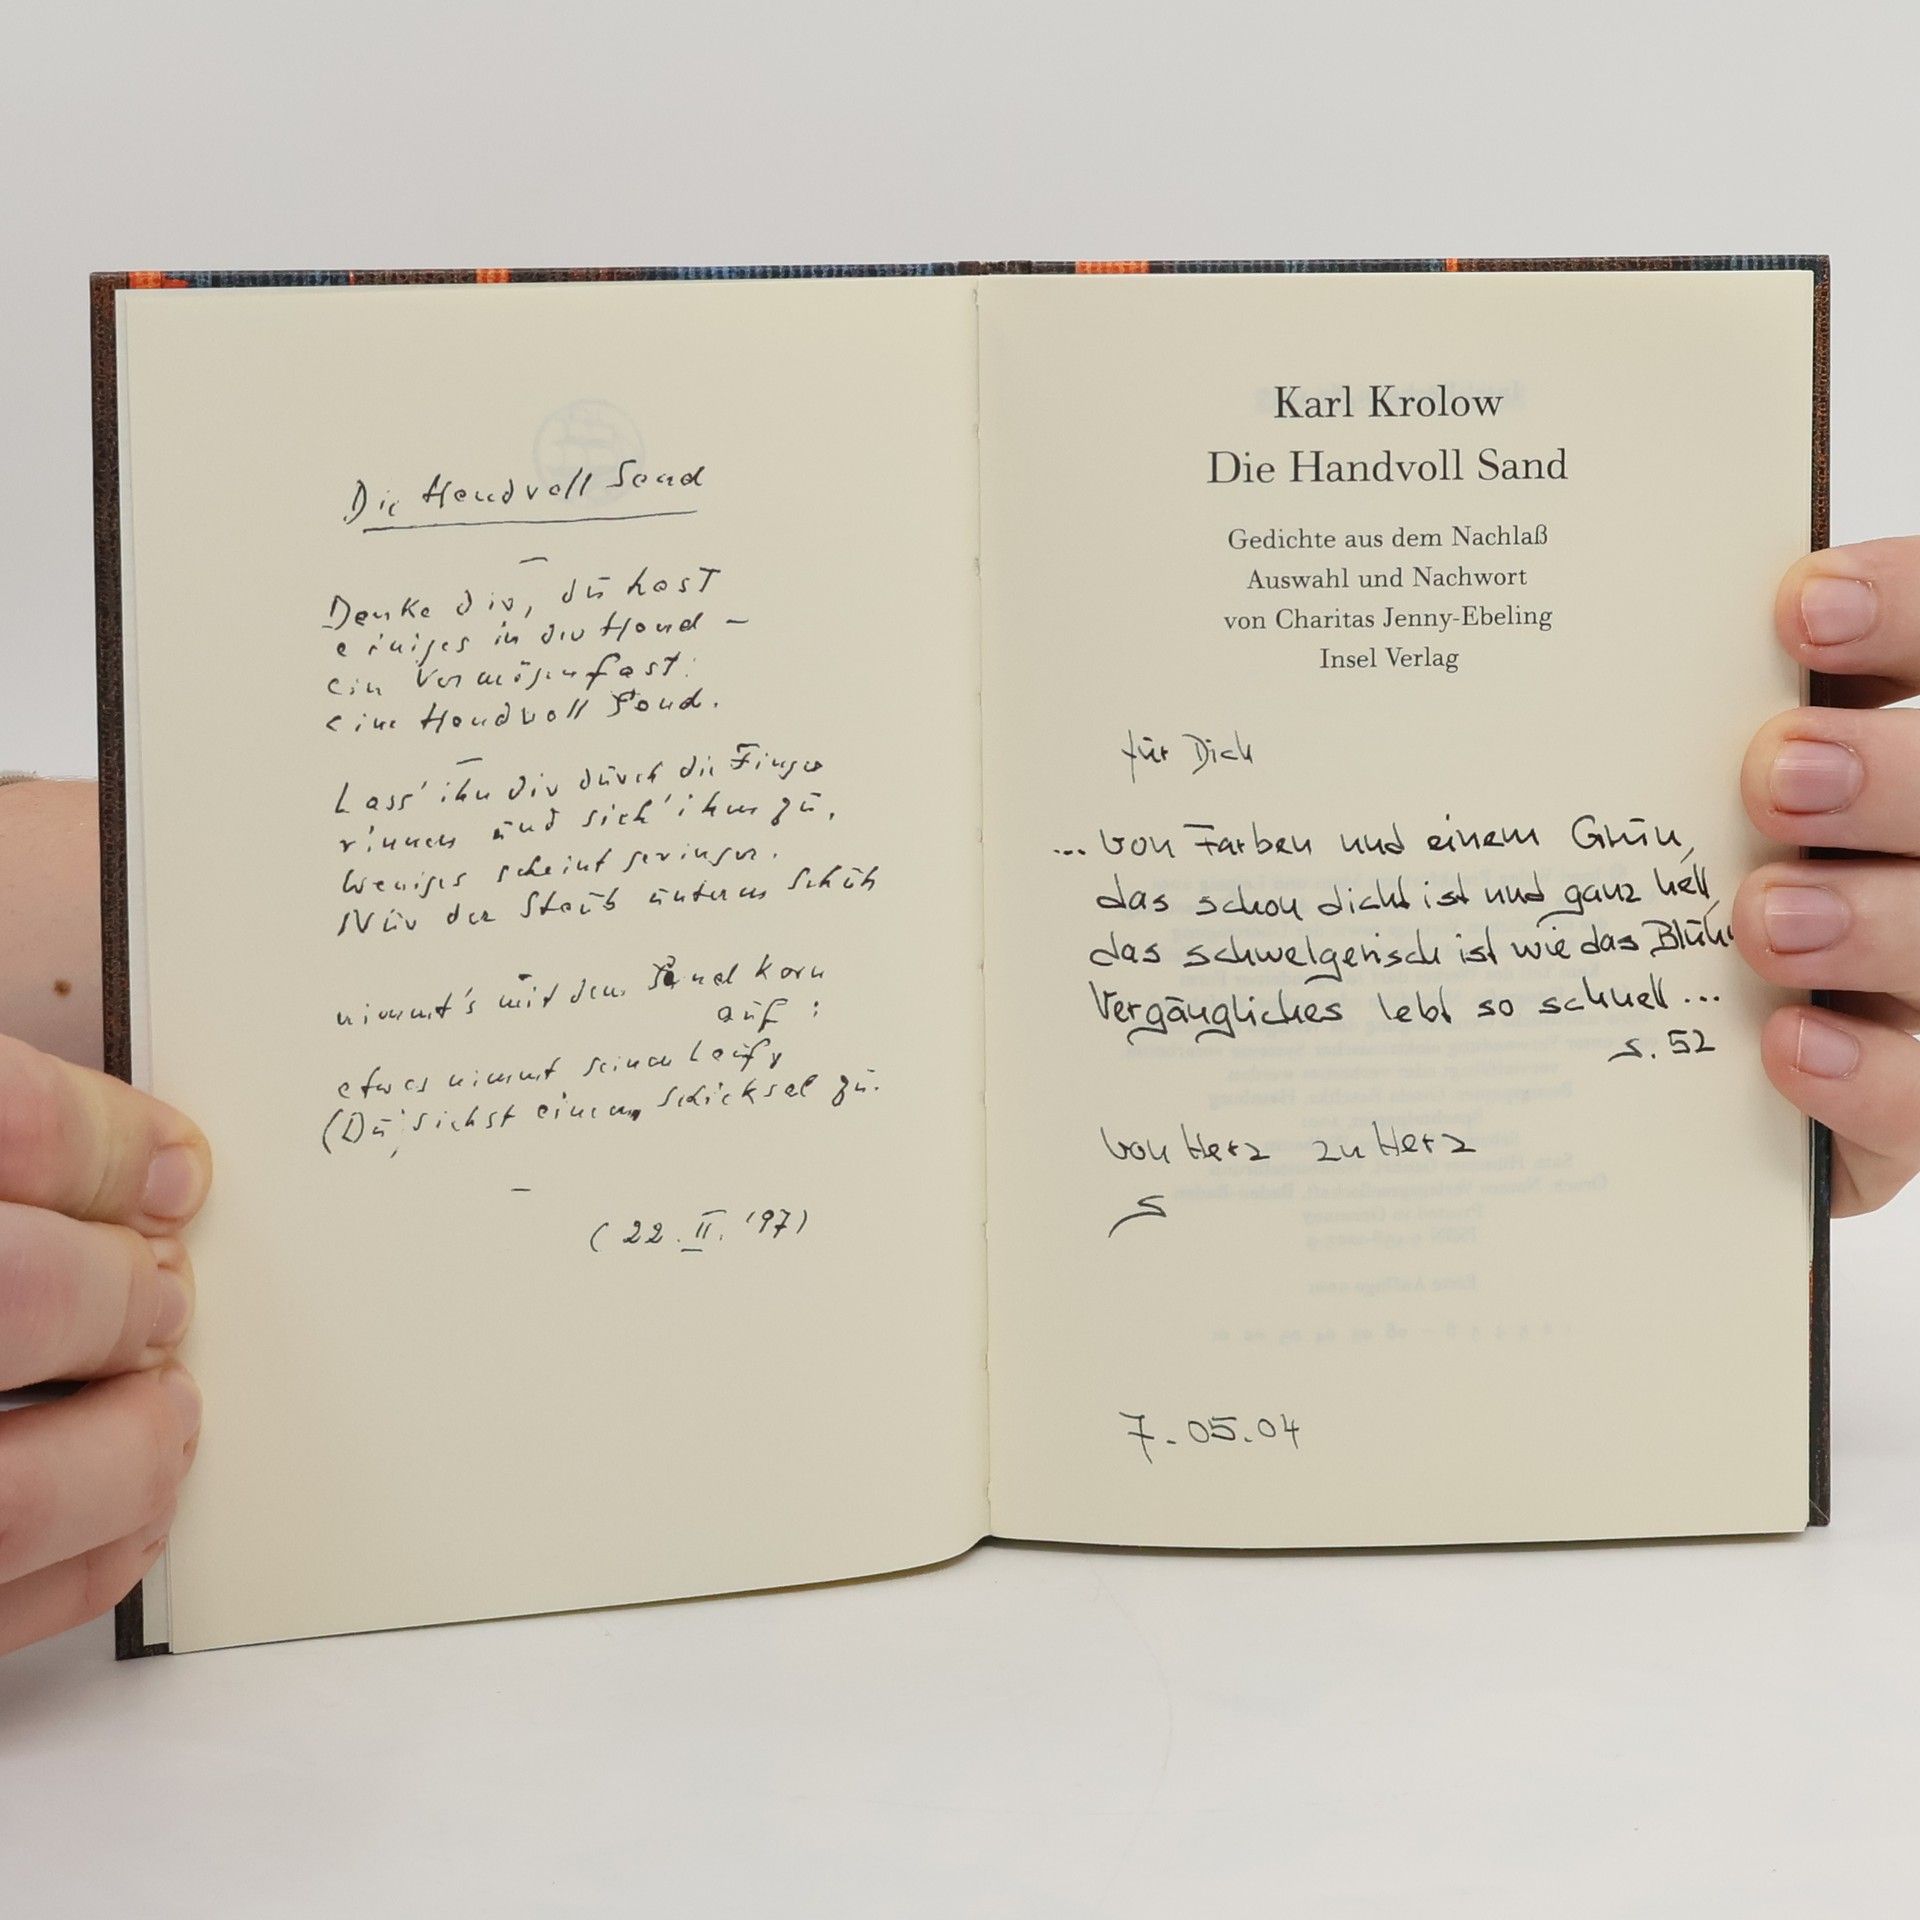 Die Handvoll Sand
Denke dir, du hast
einiges in der Hand –
ein Vermögen fast:
eine Handvoll Sand.
Lass' ihn dir durch die Finger
rinnen und sieh' ihm zu.
Weniges scheint geringer.
Nur der Staub unterm Schuh
nimmt's mit dem Sandkorn
auf:
etwas nimmt seinen Lauf,
(Du) siehst einem Schicksal zu.
(22. II. '97)
Karl Krolow
Die Handvoll Sand
Gedichte aus dem Nachlaß
Auswahl und Nachwort
von Charitas Jenny-Ebeling
Insel Verlag
für Dich
... von Farben und einem Grün,
das schon dicht ist und ganz hell,
das schwelgerisch ist wie das Blühn
Vergängliches lebt so schnell ...
S. 52
von Herz zu Herz
S
7.05.04